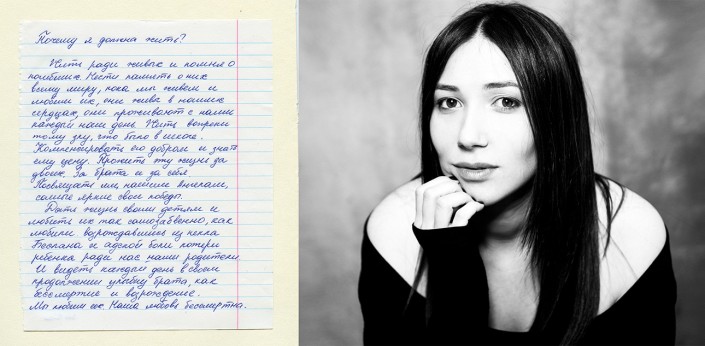 Почему я должна жить?
Жить ради живых и помня о
погибших. Нести память о них
всему миру, пока мы живем и
любим их, они живы в наших
сердцах, они проживают с нами
каждый наш день. Жить вопреки
тому злу, что было в школе.
Компенсировать его добром и знать
ему цену. Прожить эту жизнь за
двоих. За брата и за себя
Посвящать им, нашим ангелам,
самые яркие свои победы.
Дать жизнь своим детям и
любить их так самозабвенно, как
любили возрождавшись из пепла
Беслана и адской боли потери
ребенка ради нас наши родители.
И видеть каждый день в своем
продолжении улыбку брата, как
бессмертие и возрождение.
Мы любим их. Наша любовь бессмертна.